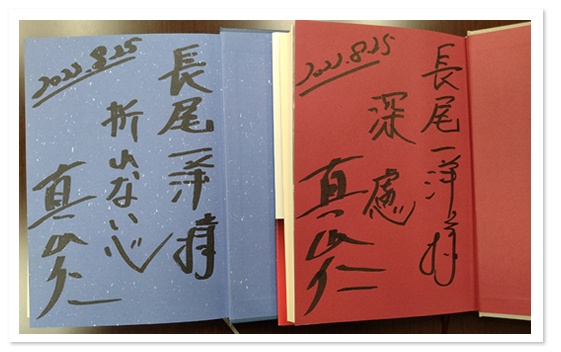 長尾一洋様
折れない心
2022.8.25
真山仁
長尾一洋様
深慮
2022.8.25
真山仁